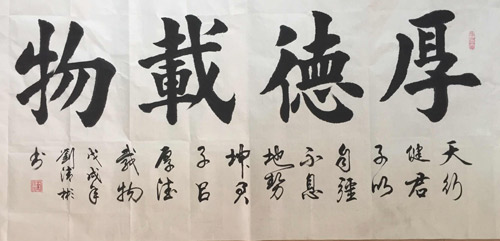 厚德載物
天行
健君
子以
自彊
不息
地勢
坤君
子㠯
厚德
載物
戊戌年
劉彬
书